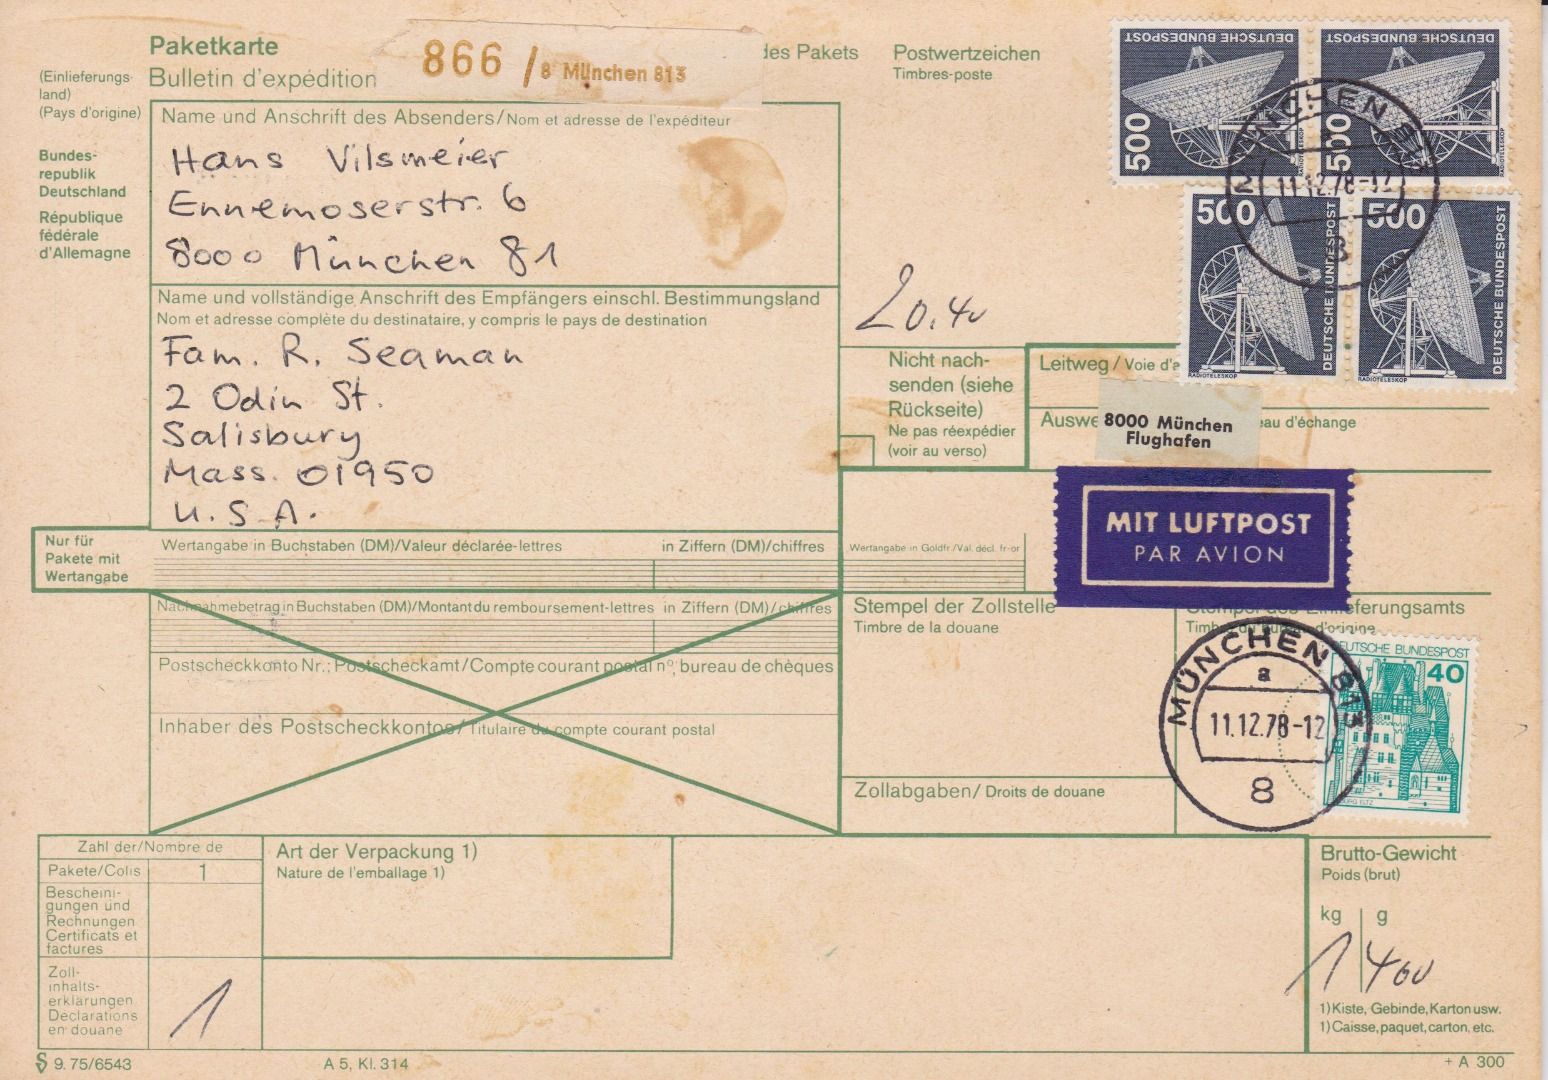 Paketkarte
Bulletin d'expédition
866 / 8 München 813
des Pakets
Postwertzeichen
Timbres-poste
(Einlieferungs-
land)
(Pays d'origine)
Bundes-
republik
Deutschland
République
fédérale
d'Allemagne
Name und Anschrift des Absenders/Nom et adresse de l'expéditeur
Hans Vilsmeier
Ennemoserstr. 6
8000 München 81
DEUTSCHE BUNDESPOST
500
RADIOTELESKOP
DEUTSCHE BUNDESPOST
500
RADIOTELESKOP
500
DEUTSCHE BUNDESPOST
RADIOTELESKOP
500
DEUTSCHE BUNDESPOST
RADIOTELESKOP
MÜNCHEN 81
11.12.78-12
8
Name und vollständige Anschrift des Empfängers einschl. Bestimmungsland
Nom et adresse complète du destinataire, y compris le pays de destination
Fam. R. Seaman
2 Odin St.
Salisbury
Mass. 01950
U.S.A.
20.40
Nicht nach-
senden (siehe
Rückseite)
Ne pas réexpédier
(voir au verso)
Leitweg / Voie d'a
Auswe
eau d'échange
8000 München
Flughafen
MIT LUFTPOST
PAR AVION
Nur für
Pakete mit
Wertangabe
Wertangabe in Buchstaben (DM)/Valeur déclarée-lettres
in Ziffern (DM)/chiffres
Wertangabe in Goldfr./Val. décl. fr-or
Nachnahmebetrag in Buchstaben (DM)/Montant du remboursement-lettres
in Ziffern (DM)/chiffres
Postscheckkonto Nr.; Postscheckamt/Compte courant postal nº; bureau de chèques
Inhaber des Postscheckkontos/Titulaire du compte courant postal
Stempel der Zollstelle
Timbre de la douane
Stempel des Einlieferungsamts
Timbre du bureau d'origine
MÜNCHEN 813
a
11.12.78-12
8
DEUTSCHE BUNDESPOST
40
BURG ELTZ
Zollabgaben/ Droits de douane
Zahl der/Nombre de
Pakete/Colis
1
Bescheini-
gungen und
Rechnungen
Certificats et
factures
Zoll-
inhalts-
erklärungen
Déclarations
en douane
1
Art der Verpackung 1)
Nature de l'emballage 1)
Brutto-Gewicht
Poids (brut)
kg | g
1 400
1) Kiste, Gebinde, Karton usw.
1) Caisse, paquet, carton, etc.
9.75/6543
A 5, Kl. 314
+ A 300